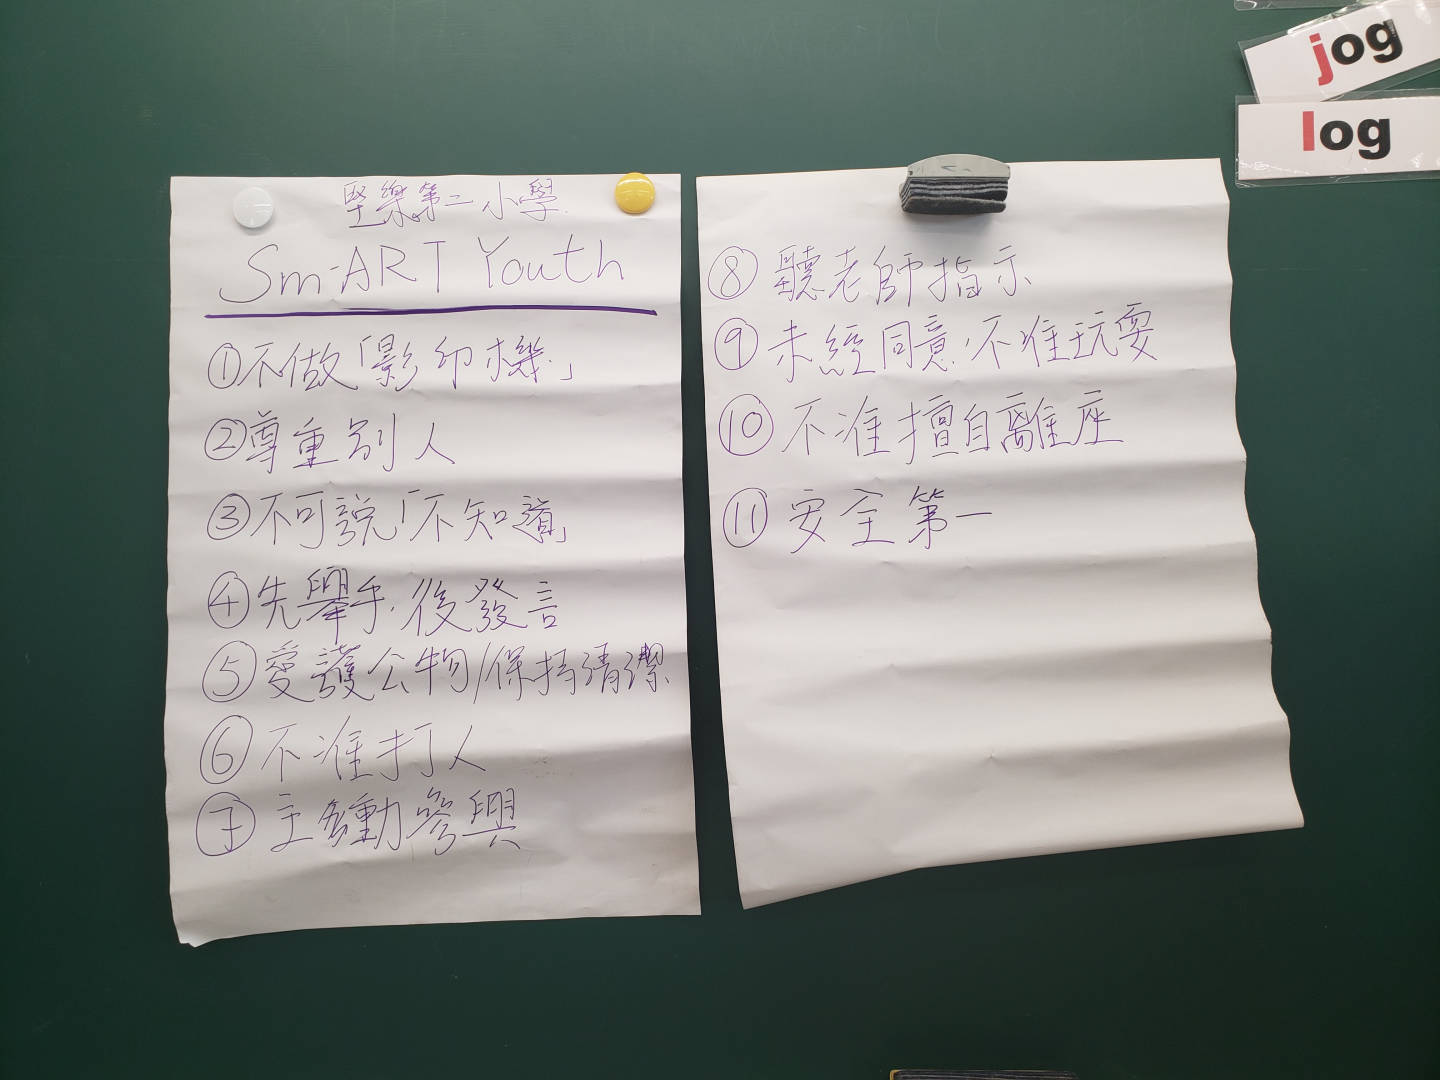 堅樂第二小學
Sm-ART Youth
①不做「影印機」
②尊重別人
③不可說「不知道」
④先舉手，後發言
⑤愛護公物/保持清潔
⑥不准打人
⑦主動參與
⑧聽老師指示
⑨未經同意，不准玩耍
⑩不准擅自離座
⑪安全第一
jog
log